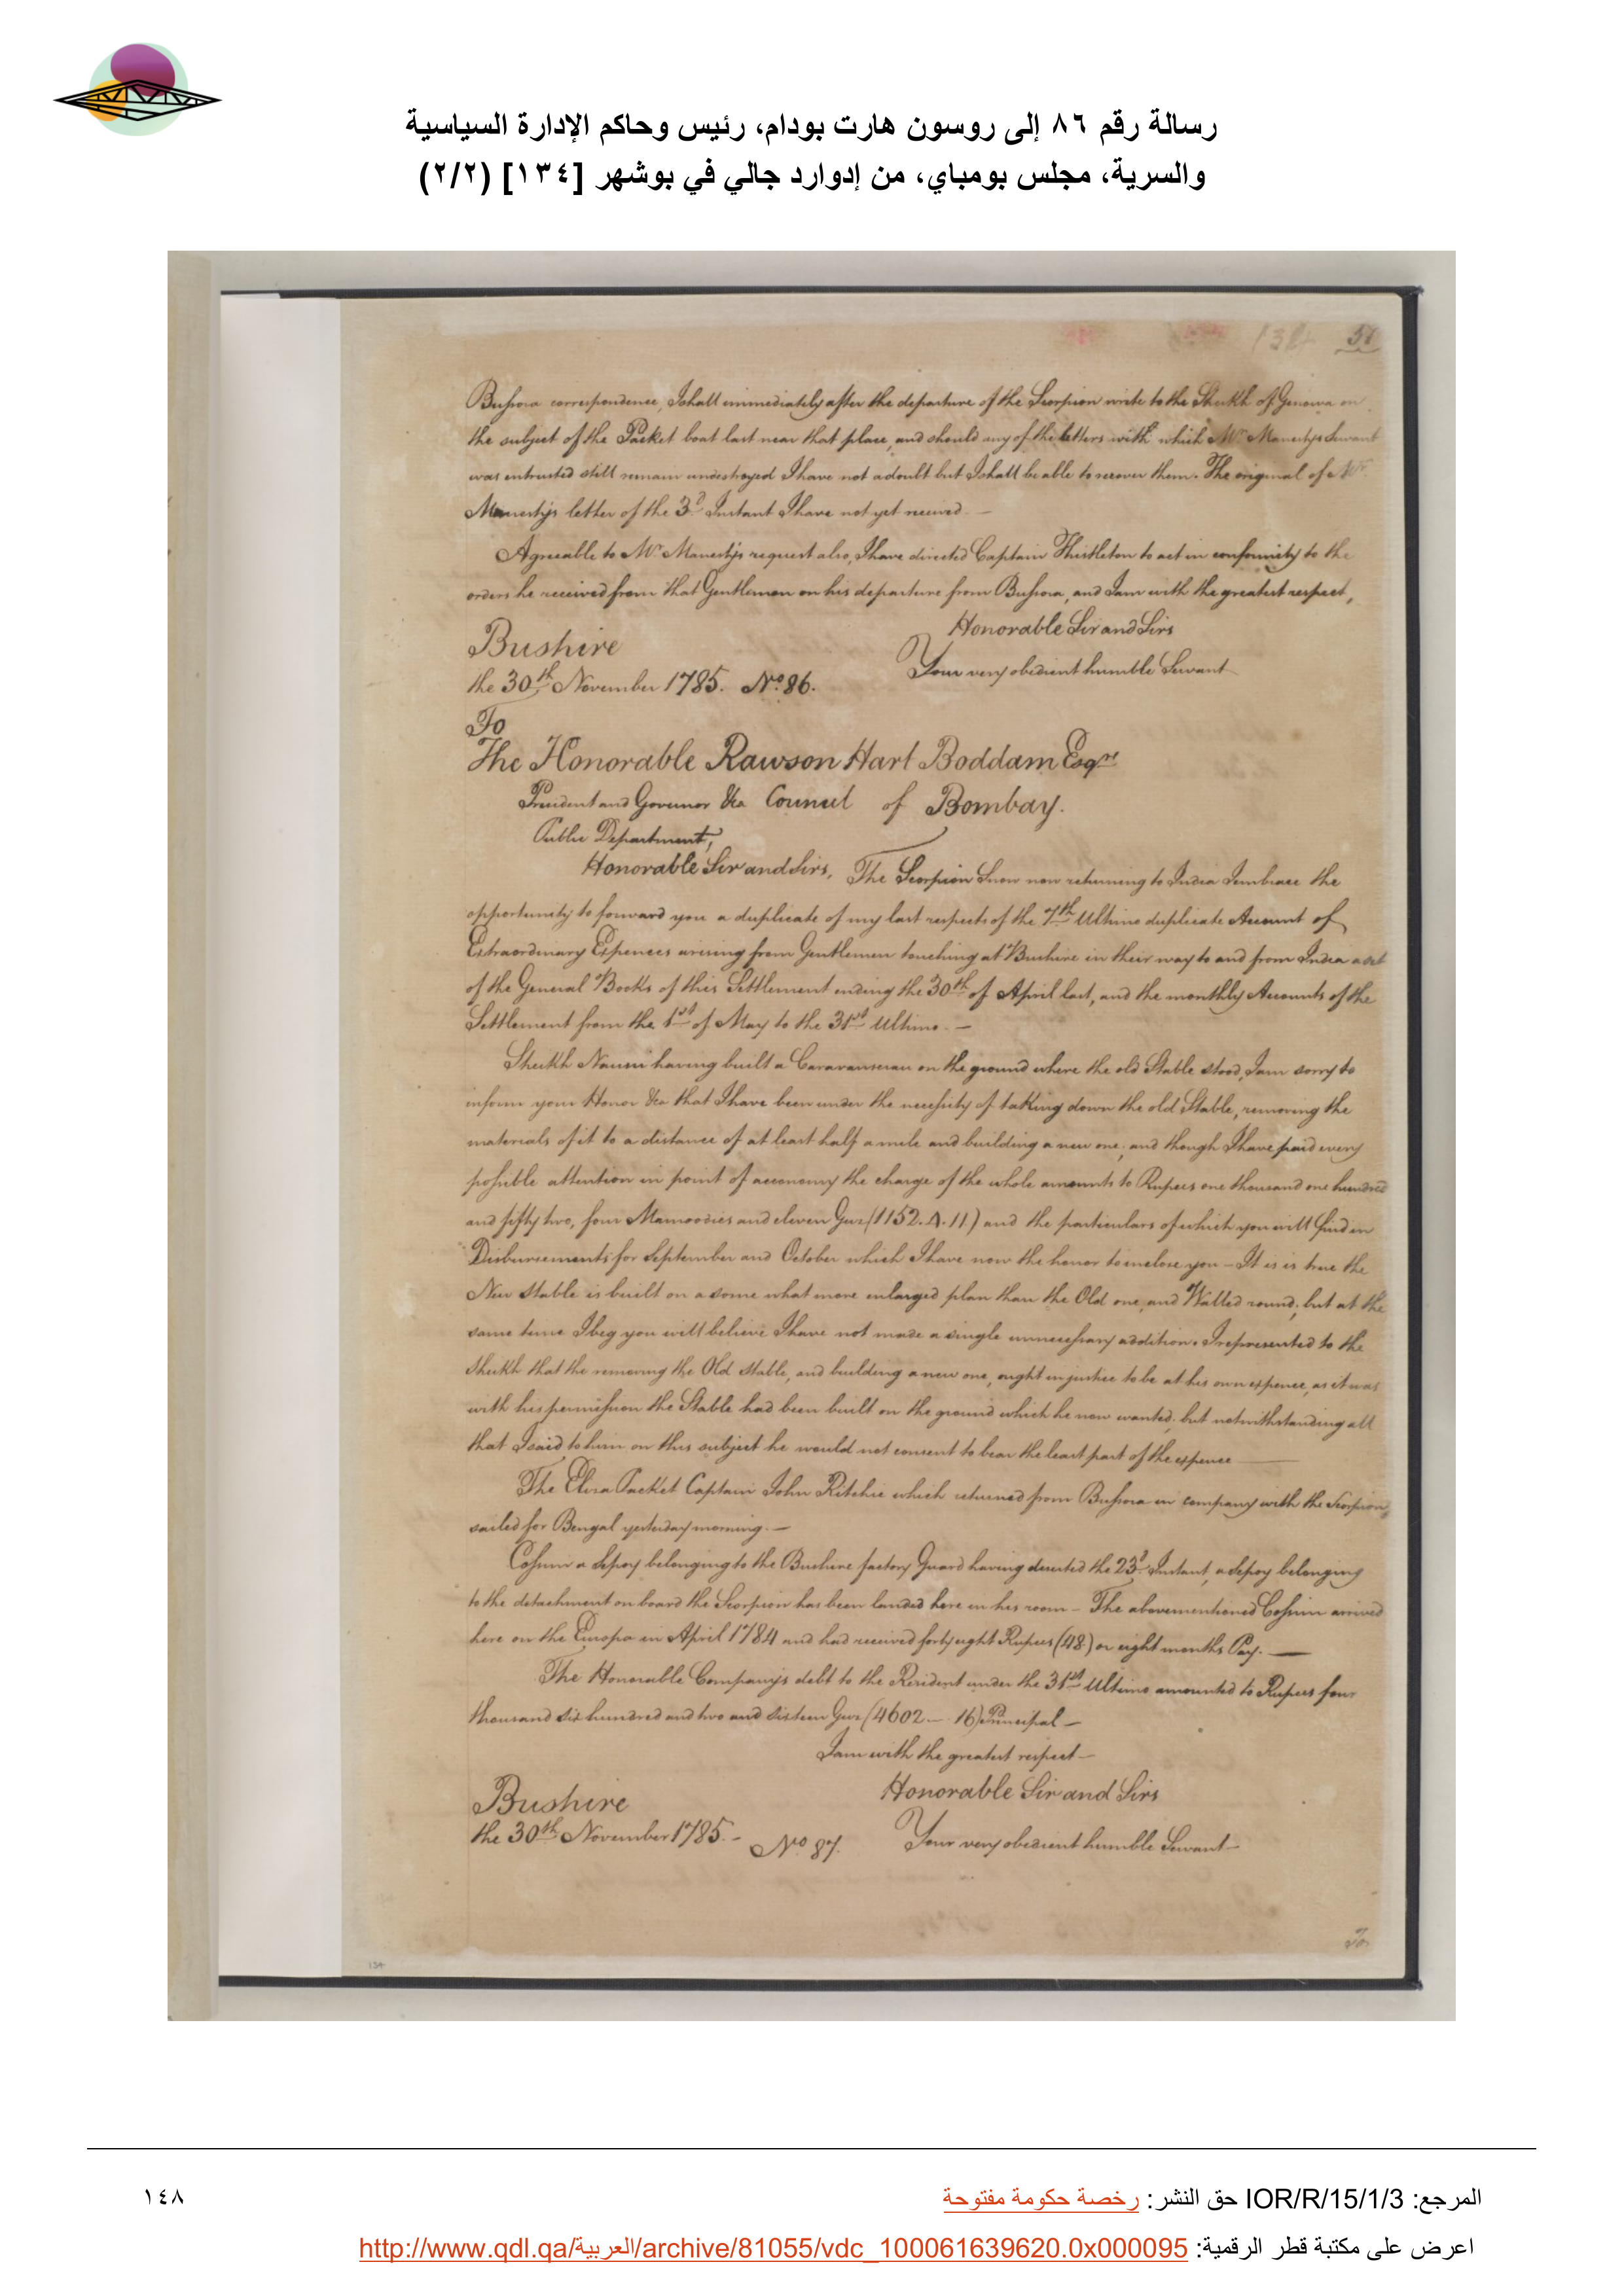 رسالة رقم ٨٦ إلى روسون هارت بودام، رئيس وحاكم الإدارة السياسية
والسرية، مجلس بومباي، من إدوارد جالي في بوشهر [١٣٤] (٢/٢)
134 51
Bussora correspondence, I shall immediately after the departure of the Scorpion write to the Sheikh of Genowa on
the subject of the Packet boat lost near that place, and should any of the letters with which Mr. Manestys Servant
was entrusted still remain undestroyed I have not a doubt but I shall be able to recover them. The original of Mr.
Manestys letter of the 3d. Instant I have not yet received —
Agreeable to Mr. Manestys request also, I have directed Captain Thistleton to act in conformity to the
orders he received from that Gentleman on his departure from Bussora, and I am with the greatest respect,
Honorable Sir and Sirs
Bushire
Your very obedient humble Servant
the 30th November 1785. No. 86.
To
The Honorable Rawson Hart Boddam Esqre
President and Governor &ca Council of Bombay.
Public Department,
Honorable Sir and Sirs, The Scorpion Snow now returning to India I embrace the
opportunity to forward you a duplicate of my last respects of the 7th Ultimo duplicate Account of
Extraordinary Expences arising from Gentlemen touching at Bushire in their way to and from India a set
of the General Books of this Settlement ending the 30th of April last, and the monthly Accounts of the
Settlement from the 1st of May to the 31st Ultimo. —
Sheikh Nassir having built a Caravanserau on the ground where the old Stable stood, I am sorry to
inform your Honor &ca that I have been under the necessity of taking down the old Stable, removing the
materials of it to a distance of at least half a mile and building a new one; and though I have paid every
possible attention in point of aeconomy the charge of the whole amounts to Rupees one thousand one hundred
and fifty two, four Mamoodies and eleven Guz (1152.4.11) and the particulars of which you will find in
Disbursements for September and October which I have now the honor to enclose you — It is is true the
New Stable is built on a some what more enlarged plan than the Old one, and Walled round; but at the
same time I beg you will believe I have not made a single unnecessary addition. I represented to the
Sheikh that the removing the Old Stable, and building a new one, ought in justice to be at his own expence, as it was
with his permission the Stable had been built on the ground which he now wanted; but notwithstanding all
that I said to him on this subject he would not consent to bear the least part of the expence —
The Eliza Packet Captain John Ritchie which returned from Bussora in company with the Scorpion,
sailed for Bengal yesterday morning. —
Cossim a Sepoy belonging to the Bushire factory Guard having deserted the 23d. Instant, a Sepoy belonging
to the detachment on board the Scorpion has been landed here in his room — The abovementioned Cossim arrived
here on the Europa in April 1784 and had received forty eight Rupees (48) or eight months Pay. —
The Honorable Companys debt to the Resident under the 31st Ultimo amounted to Rupees four
thousand six hundred and two and sixteen Guz (4602 — 16) Principal —
I am with the greatest respect —
Honorable Sir and Sirs
Bushire
the 30th November 1785. — No 87. Your very obedient humble Servant —
To
134
المرجع: IOR/R/15/1/3 حق النشر: رخصة حكومة مفتوحة
١٤٨
اعرض على مكتبة قطر الرقمية: http://www.qdl.qa/العربية/archive/81055/vdc_100061639620.0x000095